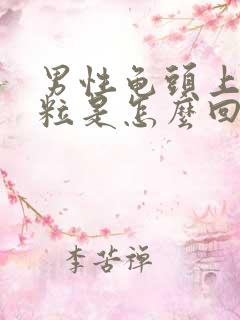 男性龟頭上
粒是怎麼回
李苦禅